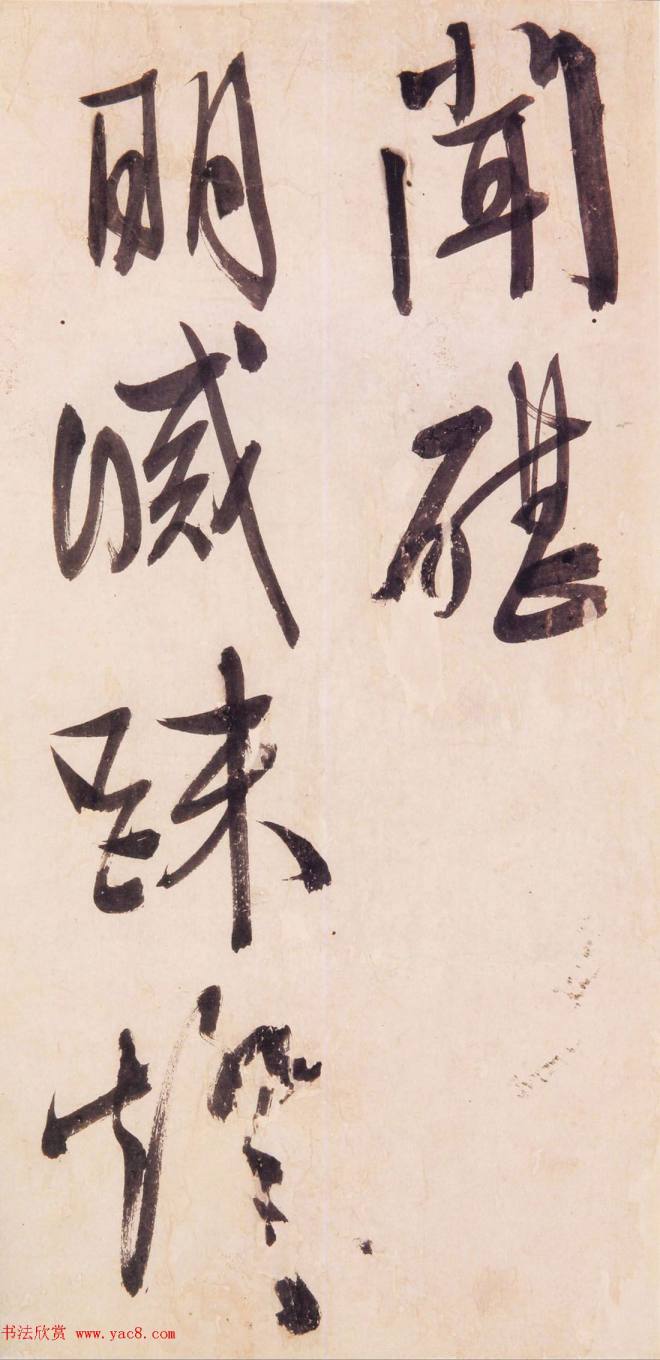 聞碪
明滅踈燈
书法欣赏 www.yac8.com